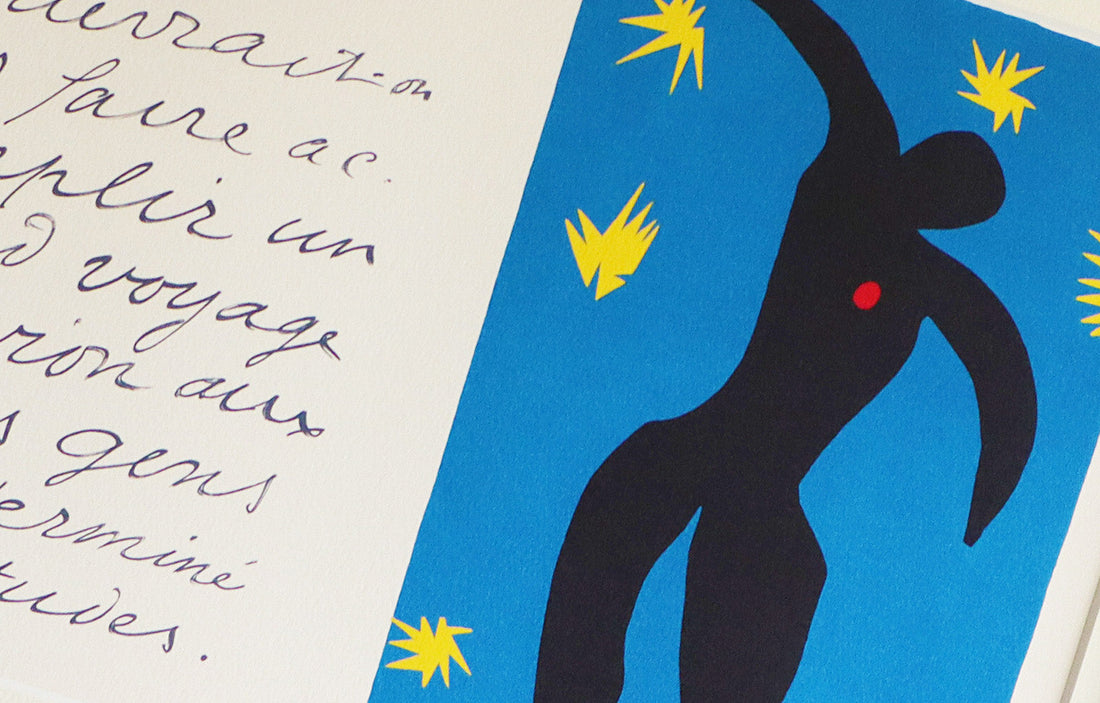 devrait-on
s faire ac.
plir un
d voyage
vion aux
s gens
terminé
tudes.